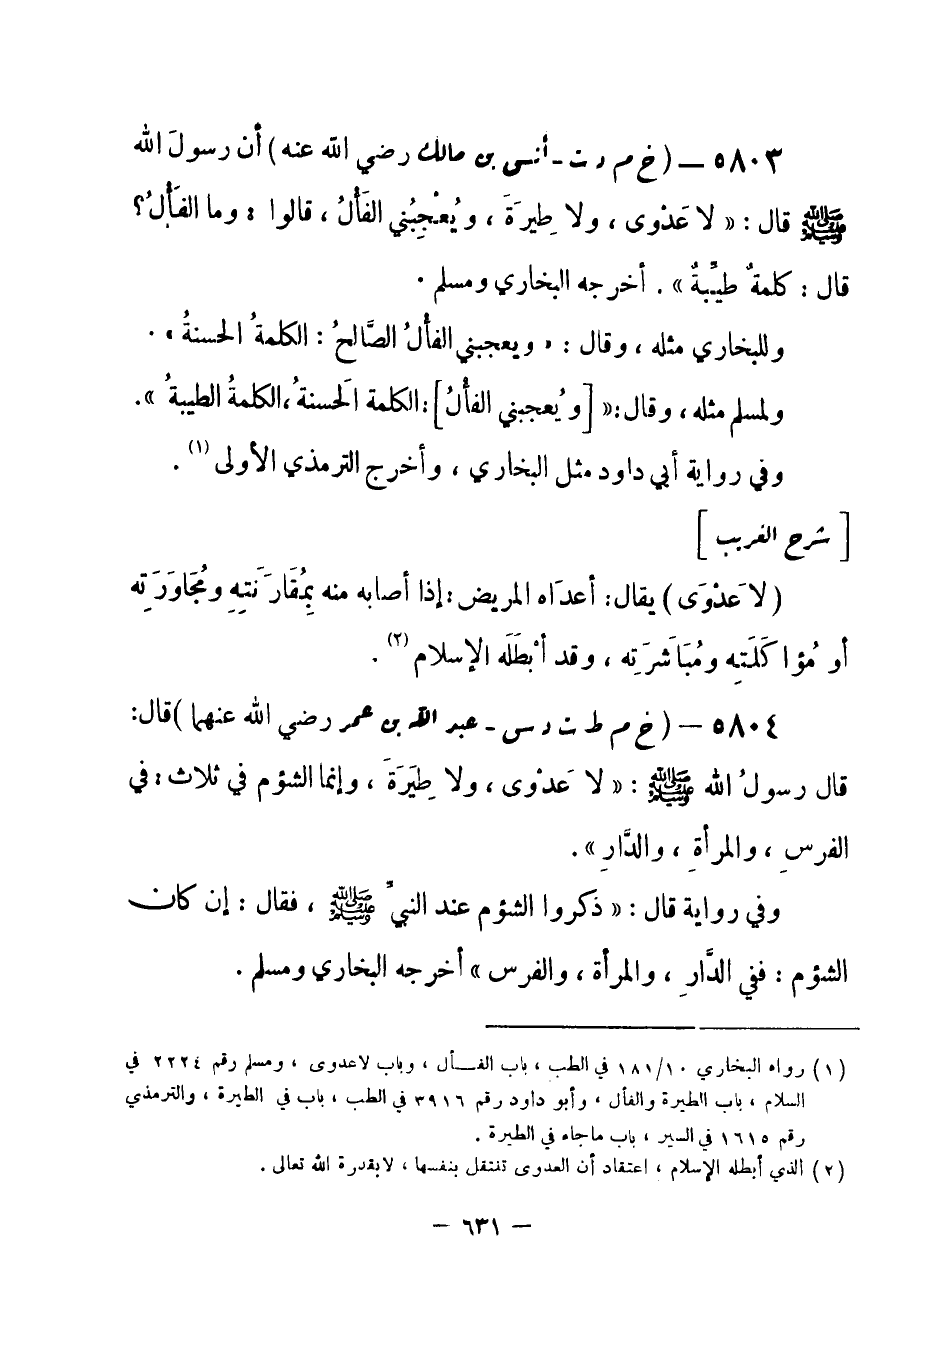 ٥٨٠٣ — ( خ م د ت - أنس بن مالك رضي الله عنه ) أن رسولَ الله
ﷺ قال : « لا عَدْوى ، ولا طِيرَةَ ، ويُعْجِبُني الفَأْلُ ، قالوا : وما الفَأْلُ ؟
قال : كلمةٌ طيِّبةٌ » . أخرجه البخاري ومسلم .
وللبخاري مثله ، وقال : « ويعجبني الفألُ الصَّالحُ : الكلمةُ الحسنةُ » .
ولمسلم مثله ، وقال : « [ ويُعجبني الفألُ ] : الكلمة الحَسنةُ ، الكلمةُ الطيبةُ » .
وفي رواية أبي داود مثل البخاري ، وأخرج الترمذي الأولى (١) .
[ شرح الغريب ]
( لا عَدْوَى ) يقال : أعدَاه المريض : إذا أصابه منه بِمُقَارَنَتِهِ ومُجَاوَرَتِه
أو مُؤاكَلَتِه ومُبَاشَرَتِه ، وقد أبْطَلَه الإسلام (٢) .
٥٨٠٤ — ( خ م ط ت د س - عبد الله بن عمر رضي الله عنهما ) قال :
قال رسولُ الله ﷺ : « لا عَدْوى ، ولا طِيَرَةَ ، وإنما الشؤم في ثلاث : في
الفرسِ ، والمرأةِ ، والدَّارِ » .
وفي رواية قال : « ذكروا الشؤم عند النبيِّ ﷺ ، فقال : إن كان
الشؤم : ففي الدَّارِ ، والمرأة ، والفرس » أخرجه البخاري ومسلم .
(١) رواه البخاري ١٠/١٨١ في الطب ، باب الفـأل ، وباب لاعدوى ، ومسلم رقم ٢٢٢٤ في
السلام ، باب الطيرة والفأل ، وأبو داود رقم ٣٩١٦ في الطب ، باب في الطيرة ، والترمذي
رقم ١٦١٥ في السير ، باب ماجاء في الطيرة .
(٢) الذي أبطله الإسلام ، اعتقاد أن العدوى تنتقل بنفسها ، لابقدرة الله تعالى .
— ٦٣١ —